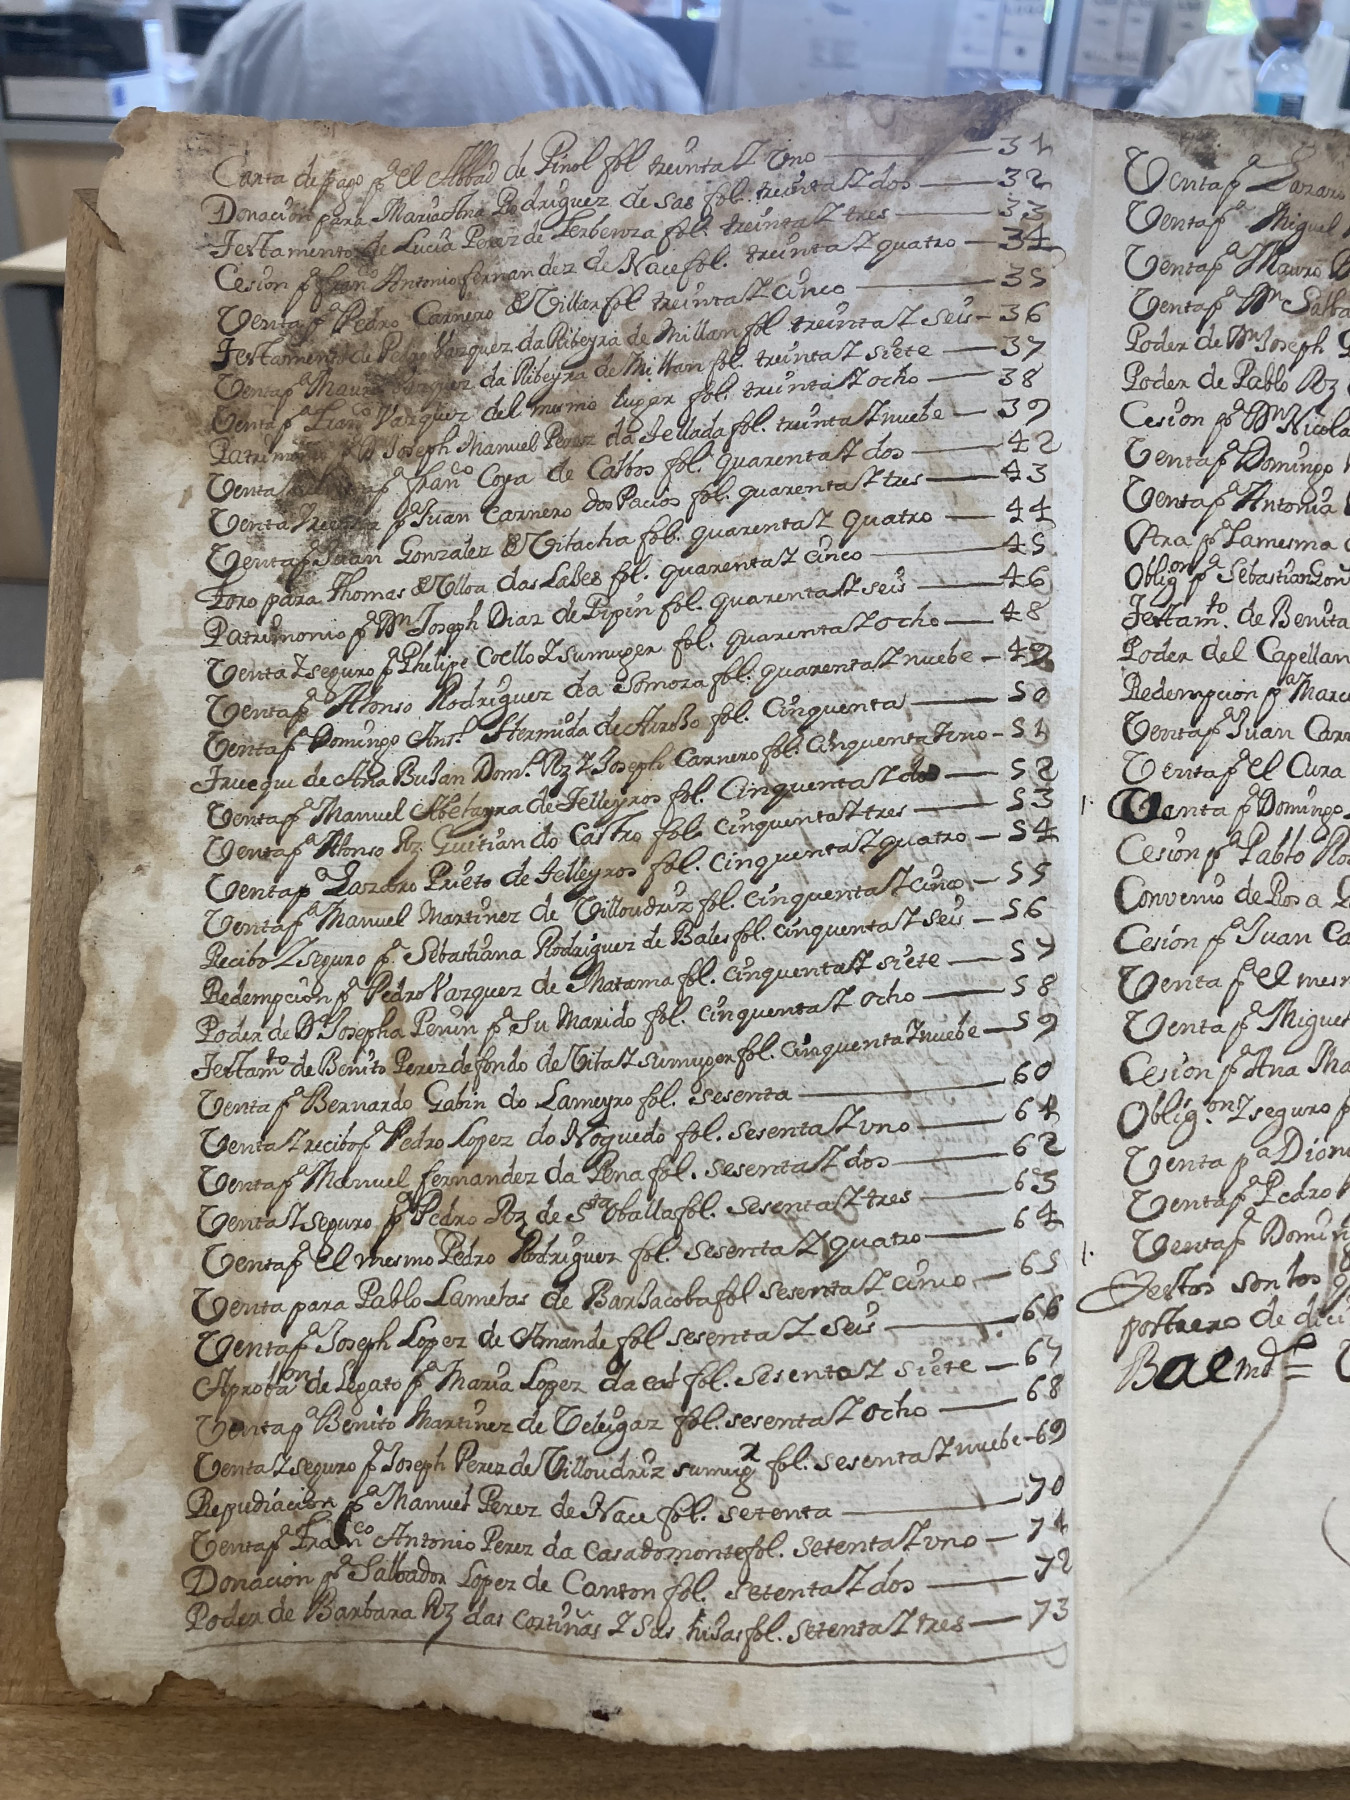 Carta de pago pª el Abbad de Piñol fol treinta Y Uno — 31
Donacion para Maria Ana Rodriguez de sas fol. treinta Y dos — 32
Testamento de Lucia Perez de Ferbenza fol. treinta Y tres — 33
Cesion pª Franco Antonio fernandez de Nace fol. treinta Y quatro — 34
Venta pª Pedro Carnero de Villar fol treinta Y cinco — 35
Testamento de Pedro Vazquez da Ribeyra de Millan fol treinta Y seis — 36
Venta pª Mauro Vazquez da Ribeyra de Millan fol. treinta Y siete — 37
Venta pª Franco Vazquez del mismo lugar fol. treinta Y ocho — 38
Patrimonio pª Dn Joseph Manuel Perez da Tellada fol. treinta Y nuebe — 39
Venta pª Franco Coya de Calbos fol. quarenta Y dos — 42
Venta pª Juan Carnero dos Pacios fol. quarenta Y tres — 43
Venta pª Juan Gonzalez de Vilacha fol. quarenta Y quatro — 44
Foro para Thomas de Ulloa das Labes fol. quarenta Y cinco — 45
Patrimonio pª Dn Joseph Diaz de Pipin fol. quarenta Y seis — 46
Venta Y seguro pª Phelipe Coello Y su muger fol. quarenta Y ocho — 48
Venta pª Alonso Rodriguez da Somoza fol. quarenta Y nuebe — 49
Venta pª Domingo Anto Hermida de Airoso fol. Cinquenta — 50
Trueque de Ana Bujan Domo Rz Y Joseph Carnero fol. Cinquenta Y uno — 51
Venta pª Manuel Abelayra de Telleyros fol. Cinquenta Y dos — 52
Venta pª Alonso Rz Guitian do Castro fol. Cinquenta Y tres — 53
Venta pª Lazaro Prieto de Telleyros fol. Cinquenta Y quatro — 54
Venta pª Manuel Martinez de Villoudriz fol. cinquenta Y cinco — 55
Recibo Y seguro pª Sebastiana Rodriguez de Bales fol. cinquenta Y seis — 56
Redempcion pª Pedro Vazquez de Matama fol. cinquenta Y siete — 57
Poder de Dª Josepha Perin pª su Marido fol. cinquenta Y ocho — 58
Testamto de Benito Perez de fondo de Vila Y su muger fol. cinquenta Y nuebe — 59
Venta pª Bernardo Gabin do Lameyro fol. sesenta — 60
Venta Y recibo pª Pedro Lopez do Noguedo fol. sesenta Y uno — 61
Venta pª Manuel fernandez da Pena fol. sesenta Y dos — 62
Venta Y seguro pª Pedro Rz de Sta Vballa fol. sesenta Y tres — 63
Venta pª el mesmo Pedro Rodriguez fol. sesenta Y quatro — 64
Venta para Pablo Lamelas de Barjacoba fol sesenta Y cinco — 65
Venta pª Joseph Lopez de Amande fol sesenta Y seis — 66
Aprobaon de Legato pª Maria Lopez da cal fol. sesenta Y siete — 67
Venta pª Benito Martinez de Veleigar fol. sesenta Y ocho — 68
Venta Y seguro pª Joseph Perez de Villoudriz su mugr fol. sesenta Y nuebe — 69
Repudiacion pª Manuel Perez de Nace fol. setenta — 70
Venta pª Franco Antonio Perez da Casa do monte fol. setenta Y uno — 71
Donacion pª Salbador Lopez de Canton fol. setenta Y dos — 72
Poder de Barbara Rz das cortiñas Y sus hijas fol. setenta Y tres — 73
Venta pª Lazaro
Venta pª Miguel
Venta pª Mauro
Venta pª Dn
Poder de Dn Joseph
Poder de Pablo Rz
Cesion pª Dn Nicola
Venta pª Domingo
Venta pª Antonia
Otra pª La mesma
Obligon pª Sebastian
Testamto. de Benita
Poder del Capellan
Redempcion pª
Venta pª Juan
Venta pª el Cura
Venta pª Domingo
Cesion pª Pablo
Convenio de Rosa
Cesion pª Juan
Venta pª el
Venta pª Miguel
Cesion pª Ana
Obligon Y seguro pª
Venta pª
Venta pª Pedro
Venta pª
Y estos son los
postrero de
Baamde =